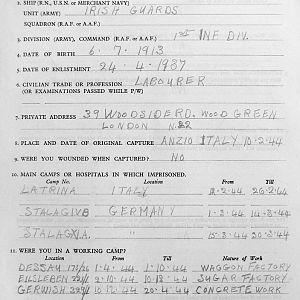 2. SHIP (R.N., U.S.N. or MERCHANT NAVY)
UNIT (ARMY) IRISH GUARDS
SQUADRON (R.A.F. or A.A.F.)
3. DIVISION (ARMY), COMMAND (R.A.F. or A.A.F.) 1st INF DIV.
4. DATE OF BIRTH 6. 7. 1913
5. DATE OF ENLISTMENT 24. 4. 1937
6. CIVILIAN TRADE OR PROFESSION LABOURER
(OR EXAMINATIONS PASSED WHILE P/W)
7. PRIVATE ADDRESS 39 WOODSIDE RD. WOOD GREEN
LONDON N.22
8. PLACE AND DATE OF ORIGINAL CAPTURE ANZIO ITALY 10.2.44
9. WERE YOU WOUNDED WHEN CAPTURED? NO
10. MAIN CAMPS OR HOSPITALS IN WHICH IMPRISONED.
Camp No. Location From Till
LATRINA ITALY 2.44 26.2.44
STALAG IVB GERMANY 1.3.44 14.3.44
STALAG " 15.3.44 30.3.44
11. WERE YOU IN A WORKING CAMP?
Location From Till Nature of Work
DESSAU 1.4.44 1.10.44 WAGGON FACTORY
EILSLEBEN 2.10.44 SUGAR FACTORY
GERWISH 20.4. CONCRETE WORK